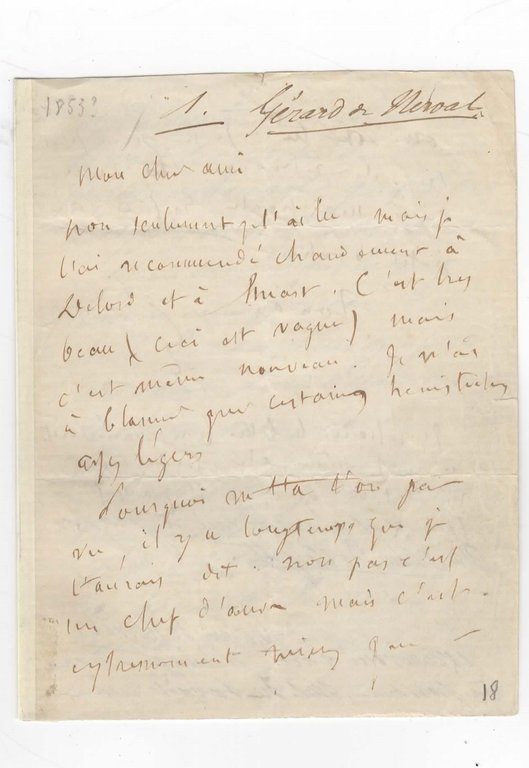 1853?
1. Gérard de Nerval.
Mon cher ami
non seulement je l'ai lu mais je
l'ai recommandé chaudement à
Delord et à . C'est très
beau (ceci est vague) mais
c'est même nouveau. Je n'ai
à blamer que certains hemistiches
assez légers
Pourquoi ne t'a t'on pas
vu, il y a longtemps que je
t'aurais dit. non pas c'est
un chef d'œuvre mais c'est
expressement que
18